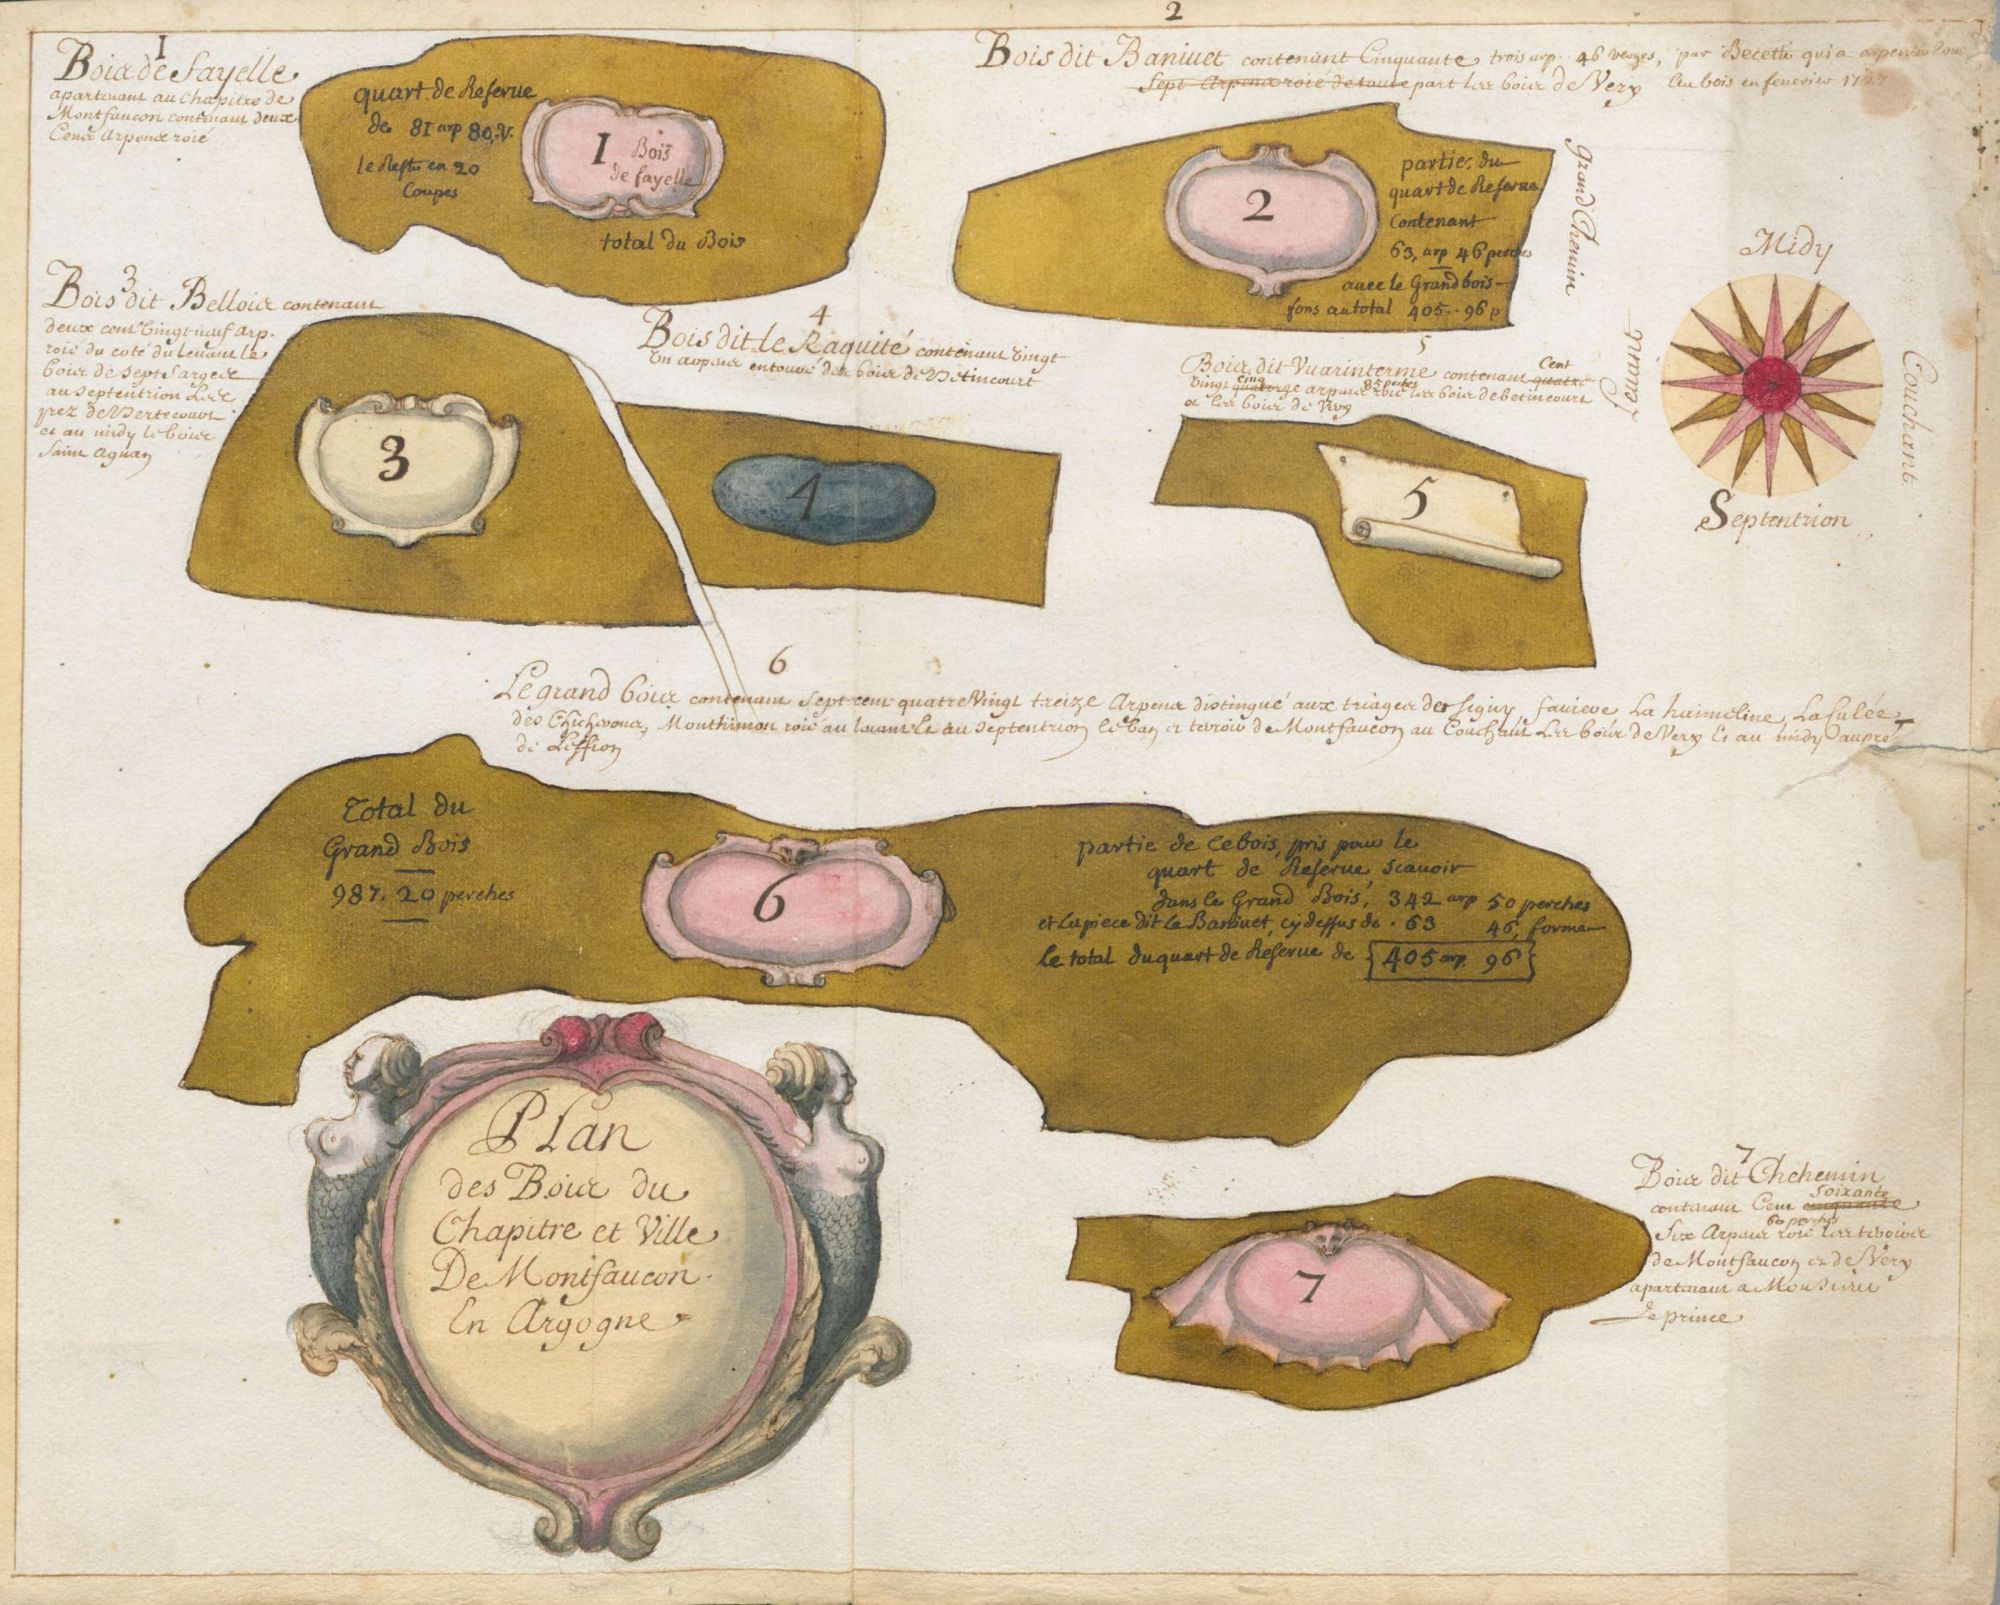 1
Bois de fayelle
apartenant au Chapitre de
Montfaucon contenant deux
Cens Arpens roié
quart de Reserue
de 81 arp 80. V.
le Reste en 20
Coupes
1
Bois
de fayelle
total du Bois
2
Bois dit Baniuet contenant Cinquante trois arp. 46 verges, par Becette qui a arpenté
Sept Arpens roié de toute part les bois de Very
bois en feurier 1727
2
partie du
quart de Reserue
Contenant
63, arp 46 perches
auec le Grand bois
fons au total 405 .. 96 p
grand Chemin
Midy
Leuant
Couchant
Septentrion
3
Bois dit Bellois contenant
deux cent vingt neuf arp.
roié du coté du leuant le
bois de Septsarges
au Septentrion les
prez de
et au midy le bois
Saint Agnan
3
4
Bois dit le Raquité contenant vingt
un arpens entouré des bois de Betincourt
4
5
Bois dit Vuarinterme contenant quatre Cent
vingt quatorze cinq arpens 85 perches roié les bois de betincourt
et les bois de Very
5
6
Le grand bois contenant Sept cent quatre Vingt treize Arpens distingué aux triages de Siguy fauieve La haimeline, La fulée
des Chichvons, Monthimon roié au leuant Et au Septentrion le ban et teroir de Montfaucon au Couchant Les bois de Very Et au midy aupré
de Lession
Total du
Grand Bois
987. 20 perches
6
partie de ce bois, pris pour le
quart de Reserue, Scauoir
dans le Grand Bois, 342 arp 50 perches
et la piece dit Le Baniuet, cy dessus de . 63 46, forme
le total du quart de Reserue de 405 arp. 96
PLan
des Bois du
Chapitre et Ville
De Montfaucon
En Argogne
7
Bois dit Chehemin
contenant Cent cinquante Soixante
Six Arpens 60 perches roié les teroirs
de Montfaucon et de Very
apartenant a Monsieur
Le prince
7